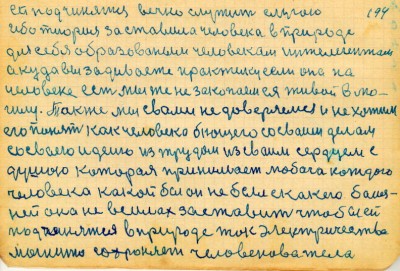 ей подчинятся вечно служить слугою 194
ибо теория заставила человека в природе
для себя образованым человекам интелентам
а куда вы задиваете практику если она на
человека есть мы же не закопаемся живой в мо-
гилу. Также мы с вами не доверяемся и не хотим
его понять как человека бующего со своим делам
со своего идею из трудом из своим сердцем с
душою которая принимает любого каждого
человека какой бы он не был с какого
ней она не в силах заставить чтобы ей
подчинятся в природе ток электричества
магнито сохроняет человека тела